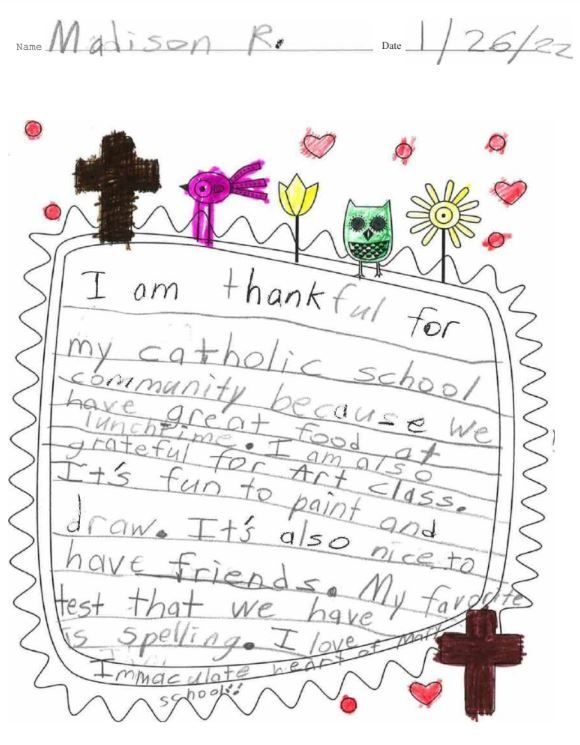 Name Madison R. Date 1/26/22
I am thankful for
my catholic school
community because we
have great food at
lunchtime. I am also
grateful for Art class.
It's fun to paint and
draw. It's also nice to
have friends. My favorite
test that we have
is spelling. I love Mary
Immaculate heart of
school!!